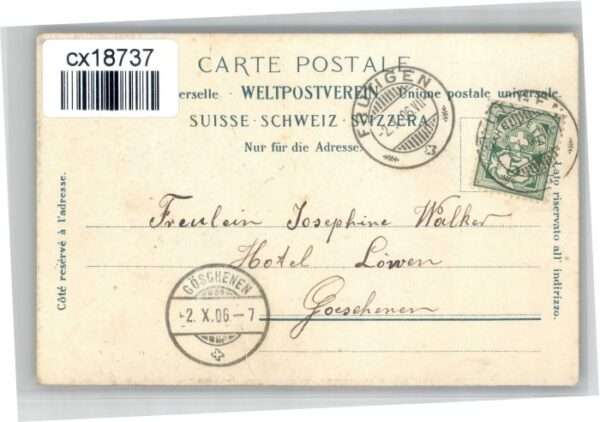 cx18737
CARTE POSTALE
erselle · WELTPOSTVEREIN · Unione postale universale.
SUISSE · SCHWEIZ · SVIZZERA
Nur für die Adresse.
Côté resérvé à l'adresse.
lato riservato all' indirizzo.
FRUTIGEN
Freulein Josephine Walker
Hotel Löwen
Goeschenen
GÖSCHENEN
-2. X. 06 – 7